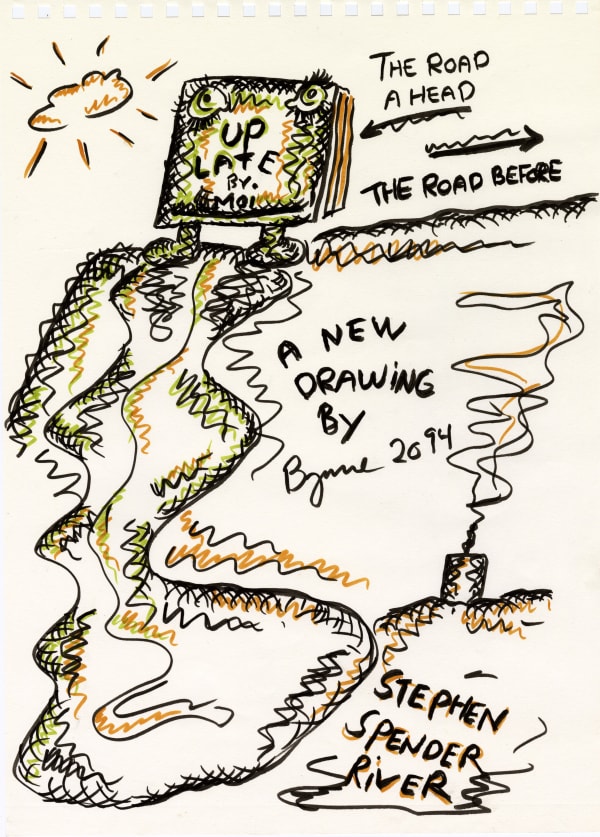 THE ROAD
A HEAD
UP
LATE
BY.
MOI
THE ROAD BEFORE
A NEW
DRAWING
BY
Byrne 2094
STEPHEN
SPENDER
RIVER